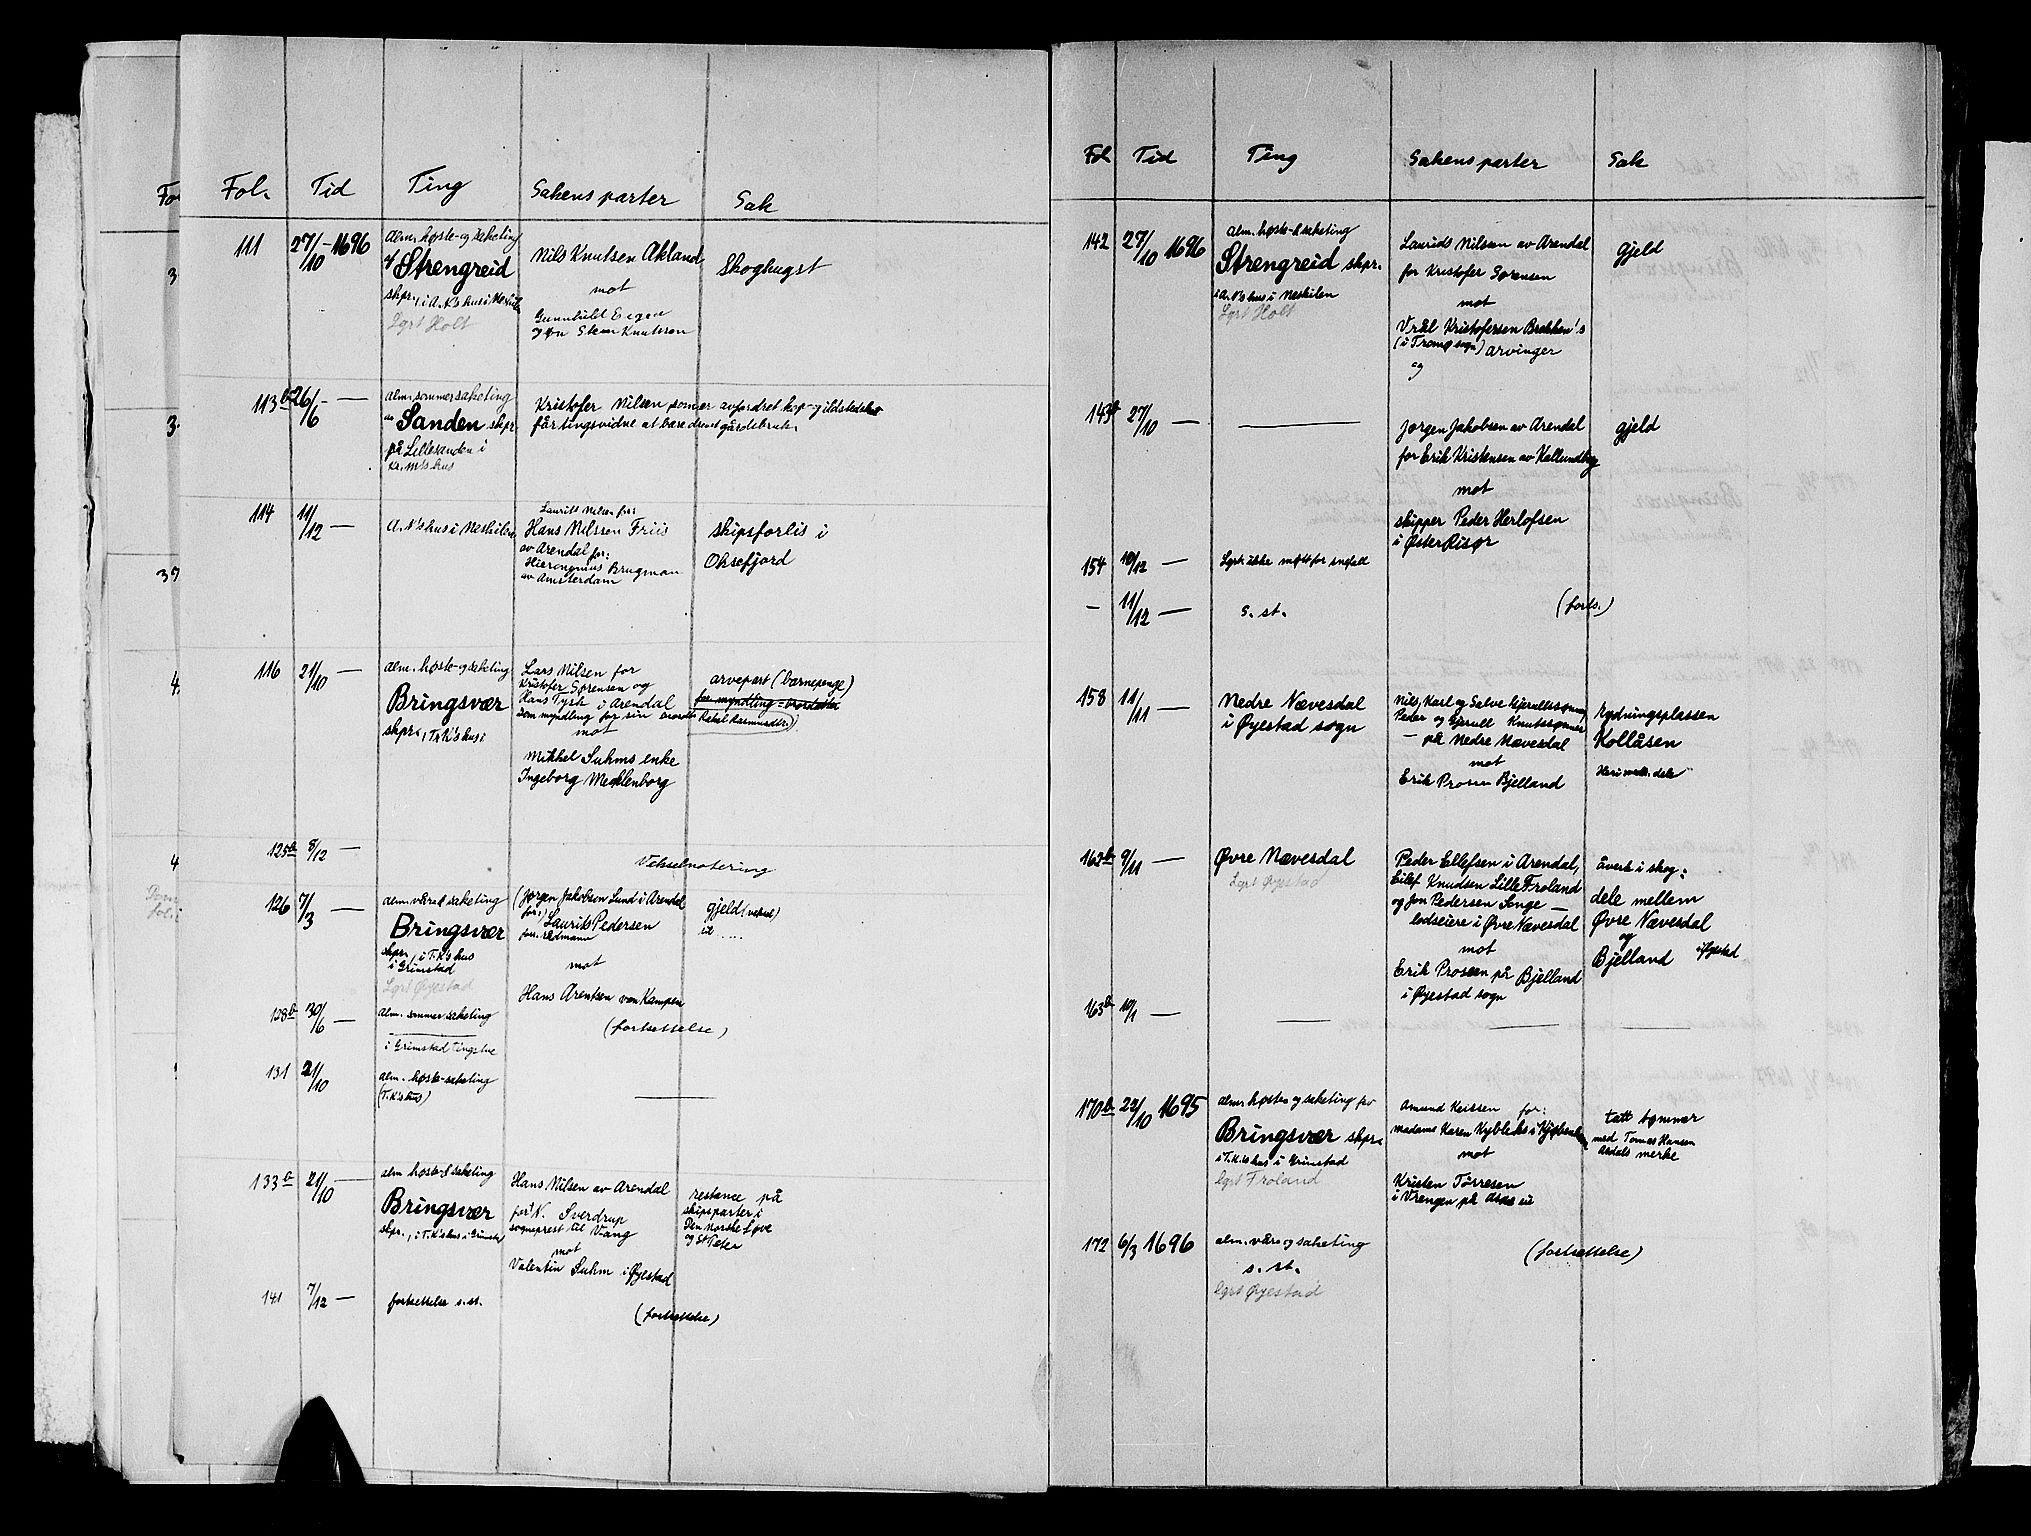 Fol. Tid Ting Sakens parter Sak
111 27/10 - 1696 alm. høste- og saketing
Strengreid
skpr., i A. N's hus i Neskilen
Lgrt Holt
Nils Knutsen Akland
mot
Gunnhild
og Knutsen
Skoghugst
113b 26/6 - — alm. sommersaketing
av Sanden skpr.
på Lillesanden i
hus
Kristofer Nilsen som er avfordret kop- og ildstedskat
får tingsvidne at bare drevet gårdsbruk.
114 11/12 — A. N's hus i Neskilen
Laurits Nilsen for:
Hans Nilssen Friis
av Arendal for:
Hieronymus Brugman
av Amsterdam
skipsforlis i
Oksefjord
116 21/10 — alm. høste- og saketing
Bringsvær
skpr., T. K's hus i
Lars Nilsen for
Kristofer Sørensen og
Hans Tysk i Arendal
som myndling for sin
mot
Mikkel Suhms enke
Ingeborg Mecklenborg
arvepart (barnepenge)
for myndling
Rakel Rasmusdtr.)
125b 8/12 — Vekselnotering
126 7/3 — alm. vår & saketing
Bringsvær
skpr., i T. K's hus
i Grimstad
Lgrt Øyestad
(Jørgen Jakobsen Lund i Arendal
for:)
Laurits Pedersen
mot
Hans Arentsen von Kampen
gjeld (veksel)
128b 30/6 — alm. sommersaketing
—
i Grimstad tingstue
(fortsettelse)
131 21/10 alm. høste-saketing
(T. K's hus)
—
133b 21/10 — alm høste- & saketing
Bringsvær
skpr., i T. K's hus i Grimstad
Hans Nilsen av Arendal
for N. Sverdrup
sogneprest til Vang
mot
Valentin Suhm i Øyestad
restance på
skipsparter i
Den Norske Løve
og St Peter
141 7/12 — fortsettelse s. st. (fortsettelse)
Fol Tid Ting Sakens parter Sak
142 27/10 1696 alm. høste- & saketing
Strengreid skpr.
i A. N's hus i Neskilen
Lgrt Holt
Laurids Nilsen av Arendal
for Kristofer Sørensen
mot
Vrål Kristofersen Brekken's
(i Tromø sogn) arvinger
og
gjeld
143b 27/10 — —
Jørgen Jakobsen av Arendal
for Erik Kristensen av Kallundborg
mot
skipper Peder Herlofsen
i ØsterRisør
gjeld
154 10/12 — Lgrt ikke møtt for snefald
— 11/12 — s. st. (forts.)
158 11/11 — Nedre Nævesdal
i Øyestad sogn
Nils, Karl og Salve Gjerulfssønner
Peder og Gjerulf Knutssønner
— på Nedre Nævesdal
mot
Erik Prosen Bjelland
rydningsplassen
Kollåsen
162b 9/11 — Øvre Nævesdal
Lgrt Øyestad
Peder Ellefsen i Arendal,
Eilef Knudsen Lille Froland
og Jon Pedersen Songe —
lodseiere i Øvre Nævesdal
mot
Erik Prosen på Bjelland
i Øyestad sogn
åverk i skog:
dele mellem
Øvre Nævesdal
og
Bjelland i Øyestad
163b 10/1 — — — —
170b 22/10 1695 alm. høste og saketing for
Bringsvær skpr.
i T. K's hus i Grimstad
Lgrt Froland
Amund Keissen for:
madame Karen i Kjøbenhavn
mot
Kristen Tørresen
i Vrengen på
tatt tømmer
med Tomas Hansen
Asdals merke
172 6/3 1696 alm. vår- og saketing
s. st.
Lgrt Øyestad
(fortsettelse)